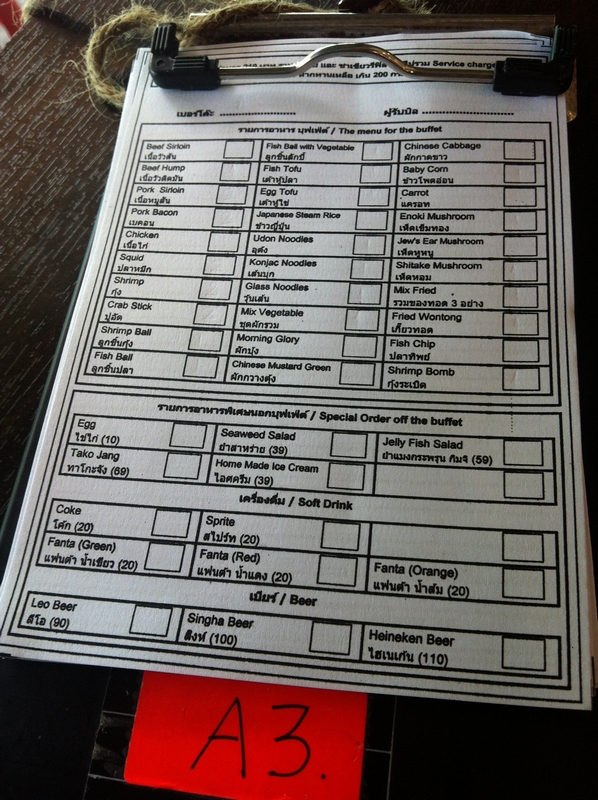 และ ชาเขียวรีฟิล Service charge
ทานเหลือ เกิน 200
เบอร์โต๊ะ ........................ ผู้รับบิล ............................
รายการอาหาร บุฟเฟ่ต์ / The menu for the buffet
Beef Sirloin Fish Ball with Vegetable Chinese Cabbage
เนื้อวัวสัน ลูกชิ้นลักยี้ ผักกาดขาว
Beef Hump Fish Tofu Baby Corn
เนื้อวัวติดมัน เต้าหู้ปลา ข้าวโพดอ่อน
Pork Sirloin Egg Tofu Carrot
เนื้อหมูสัน เต้าหู้ไข่ แครอท
Pork Bacon Japanese Steam Rice Enoki Mushroom
เบคอน ข้าวญี่ปุ่น เห็ดเข็มทอง
Chicken Udon Noodles Jew's Ear Mushroom
เนื้อไก่ อุด้ง เห็ดหูหนู
Squid Konjac Noodles Shitake Mushroom
ปลาหมึก เส้นบุก เห็ดหอม
Shrimp Glass Noodles Mix Fried
กุ้ง วุ้นเส้น รวมของทอด 3 อย่าง
Crab Stick Mix Vegetable Fried Wontong
ปูอัด ชุดผักรวม เกี๊ยวทอด
Shrimp Ball Morning Glory Fish Chip
ลูกชิ้นกุ้ง ผักบุ้ง ปลาทิพย์
Fish Ball Chinese Mustard Green Shrimp Bomb
ลูกชิ้นปลา ผักกวางตุ้ง กุ้งระเบิด
รายการอาหารพิเศษนอกบุฟเฟ่ต์ / Special Order off the buffet
Egg Seaweed Salad Jelly Fish Salad
ไข่ไก่ (10) ยำสาหร่าย (39) ยำแมงกระพรุน กิมจิ (59)
Tako Jang Home Made Ice Cream
ทาโกะจัง (69) ไอศครีม (39)
เครื่องดื่ม / Soft Drink
Coke Sprite
โค้ก (20) สไปร์ท (20)
Fanta (Green) Fanta (Red) Fanta (Orange)
แฟนต้า น้ำเขียว (20) แฟนต้า น้ำแดง (20) แฟนต้า น้ำส้ม (20)
เบียร์ / Beer
Leo Beer Singha Beer Heineken Beer
ลีโอ (90) สิงห์ (100) ไฮเนเก้น (110)
A3.